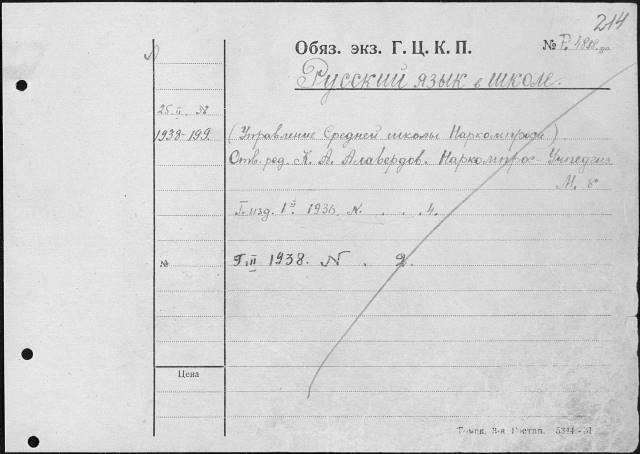 214
Обяз. экз. Г. Ц. К. П.
№
Русский язык в школе.
25. II. 38
1938-199.
(Управление Средней школы Наркомпроса)
Отв. ред. К. А. Алавердов. Наркомпрос - Учпедгиз
М. 8
Г. изд. 1й. 1936. N. . . 4.
№ Г. II 1938. N . 2.
Цена
Томск. 3-я Гостип. 5344-31